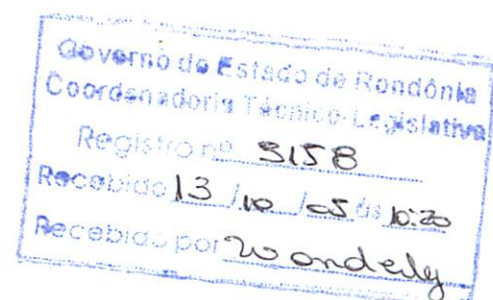 Governo do Estado de Rondônia
Coordenadoria Técnico-Legislativa
Registro nº 3158
Recebido 13 / 10 / 05 às 10:20
Recebido por Wanderly